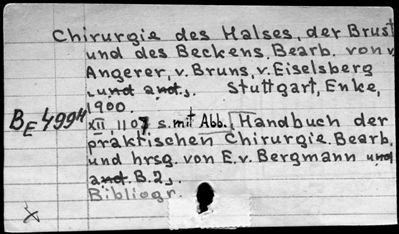 Chirurgie des Halses, der Brust
und des Beckens, Bearb. von v.
Angerer, v. Bruns, v. Eiselsberg
und and., Stuttgart, Enke,
1900.
BE 499H XII 1107 s. mit Abb. [Handbuch der
praktischen Chirurgie. Bearb.
und hrsg. von E. v. Bergmann und
and. B. 2,.
Bibliogr.